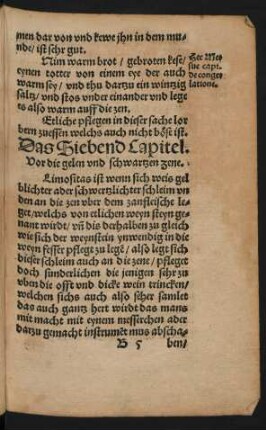 men dar von vnd kewe jhn in dem mu-
nde/ ist sehr gut.
Nim warm brot / gebroten kese/
eynen totter von einem eye der auch
warm sey / vnd thu dartzu ein wintzig
saltz/ vnd stos vnder einander vnd lege
es also warm auff die zen.
Etliche pflegen in dieser sache lor
bern zuessen welchs auch nicht böse ist.
Das Siebend Capitel.
Vor die gelen vnd schwartzen zene.
Limositas ist wenn sich weis gel
blichter ader schwertzlichter schleim vn
den an die zen vber dem zanfleische le
get/welchs von etlichen weyn steyn ge-
nant wirdt / vñ dis derhalben zu gleich
wie sich der weynstein ynwendig in die
weyn fesser pflegt zu legẽ/ also legt sich
dieser schleim auch an die zene/ pfleget
doch sunderlichen die jenigen sehr zu
vben die offt vnd dicke wein trincken/
welchen sichs auch also seher samlet
das auch gantz hert wirdt das mans
mit macht mit eynem messerchen ader
dartzu gemacht instrumẽt mus abscha-
B 5 ben/
Der Me-
sue capi.
de conge
lations.